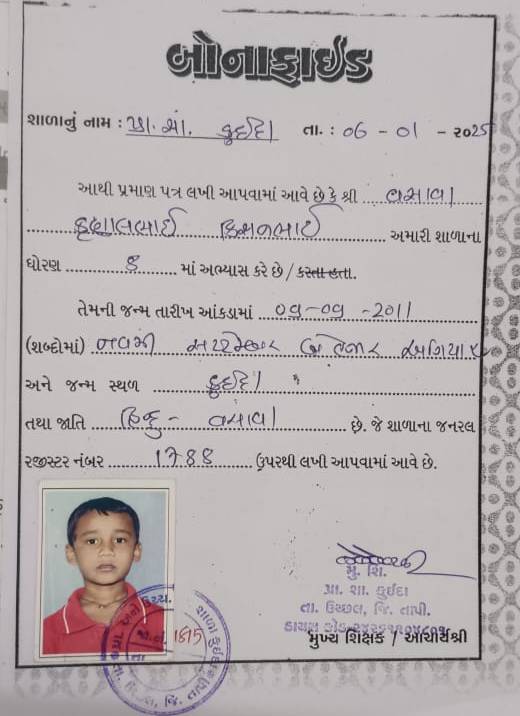 બોનાફાઈડ
શાળાનું નામ : પ્રા. શા. કુઈદા તા. : ૦6 - ૦1 - ૨૦25
આથી પ્રમાણ પત્ર લખી આપવામાં આવે છે કે શ્રી વસાવા
કૃણાલભાઈ કિસનભાઈ અમારી શાળાના
ધોરણ ૬ માં અભ્યાસ કરે છે / કરતા હતા.
તેમની જન્મ તારીખ આંકડામાં ૦૯-૦૯-2૦11
(શબ્દોમાં) નવમી સપ્ટેમ્બર બે હજાર અગિયાર
અને જન્મ સ્થળ કુઈદા
તથા જાતિ હિન્દુ - વસાવા છે. જે શાળાના જનરલ
રજીસ્ટર નંબર ઉપરથી લખી આપવામાં આવે છે.
મુ. શિ.
પ્રા. શા. કુઈદા
તા. ઉચ્છલ, જિ. તાપી.
મુખ્ય શિક્ષક / આચાર્યશ્રી